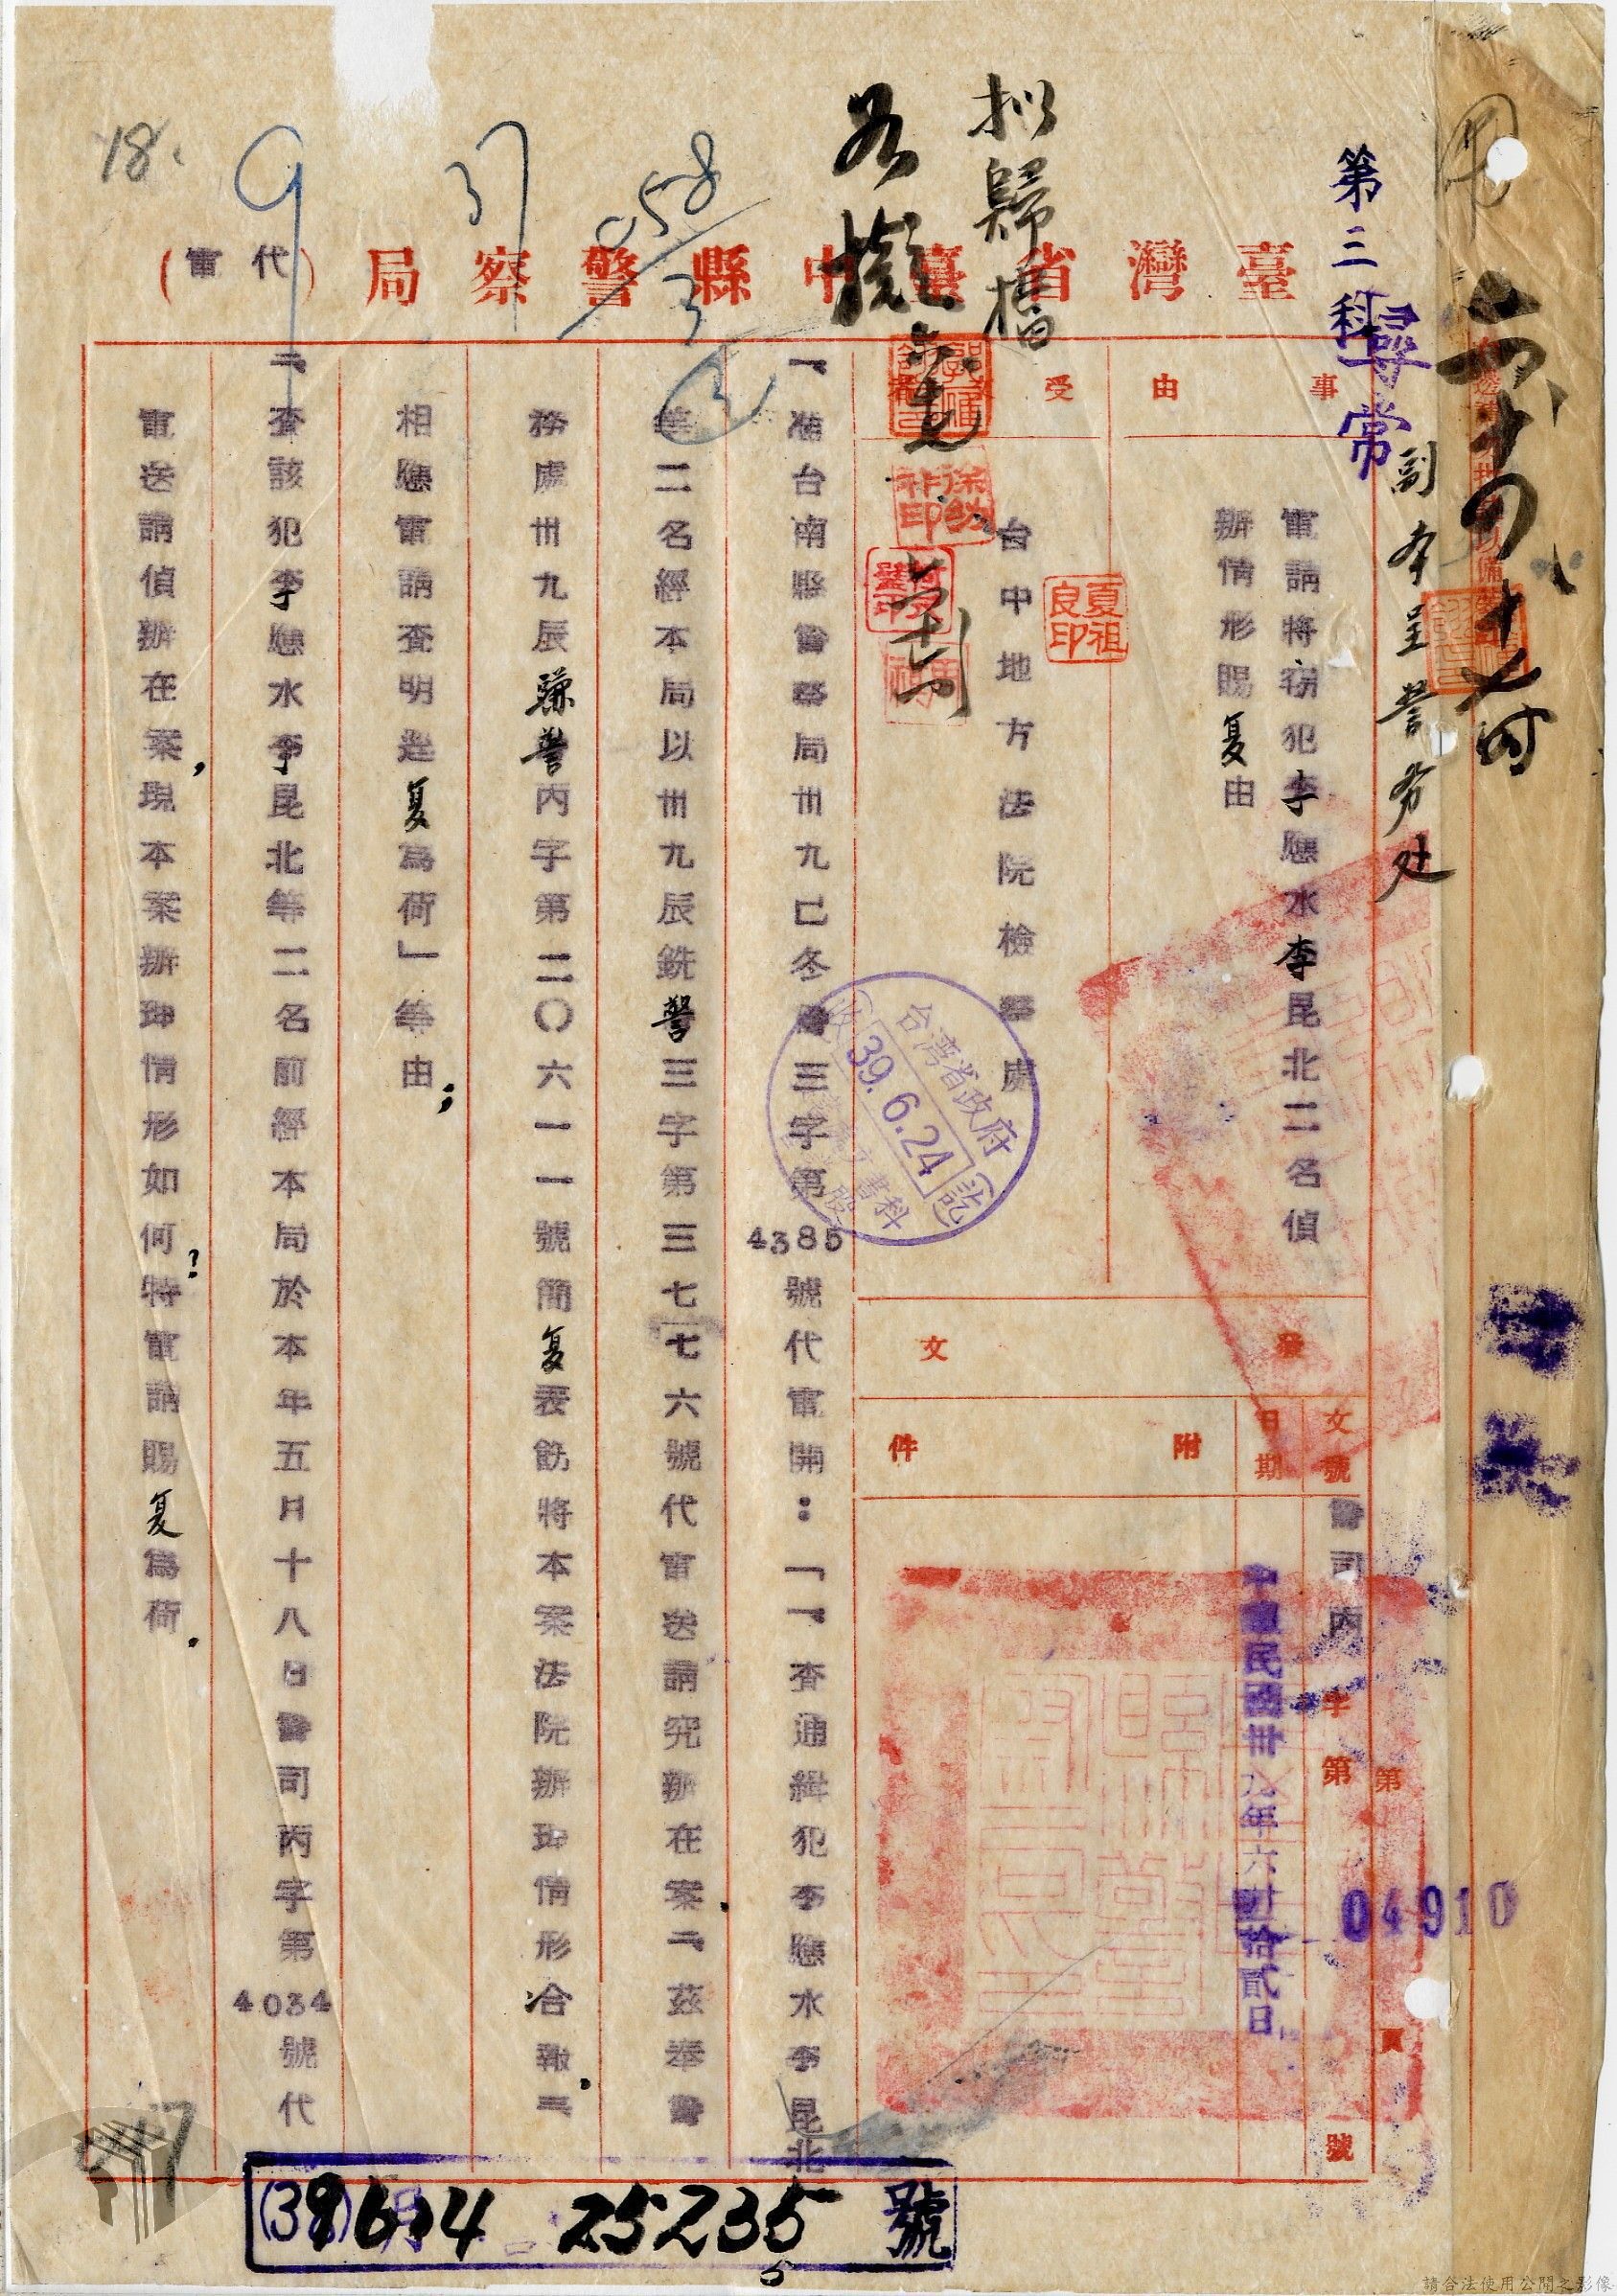 臺灣省臺中縣警察局(代電)
第三科
尋常
副本呈警務处
擬歸檔
事由
電請將竊犯李應水李昆北二名偵
辦情形賜复由
受
台中地方法院檢察處
夏祖良印
發文
附件
日期
文號
警司丙字第04910號
中華民國卅九年六月拾貳日
一、准台南縣警察局卅九巳冬警三字第4385號代電開:「一、查通緝犯李應水李昆北
等二名經本局以卅九辰銑警三字第三七七六號代電送請究辦在案.二、茲奉警
務處卅九辰 警丙字第二〇六一一號簡复表飭將本案法院辦理情形合報.三、
相應電請查明逕复為荷」等由;
二、查該犯李應水李昆北等二名前經本局於本年五月十八日警司丙字第4034號代
電送請偵辦在案,現本案辦理情形如何?特電請賜复為荷.
台湾省政府
39.6.24
收
訖
37
058
3
9
18.
17
(39) 6.14 25235 號
5
請合法使用公開之影像